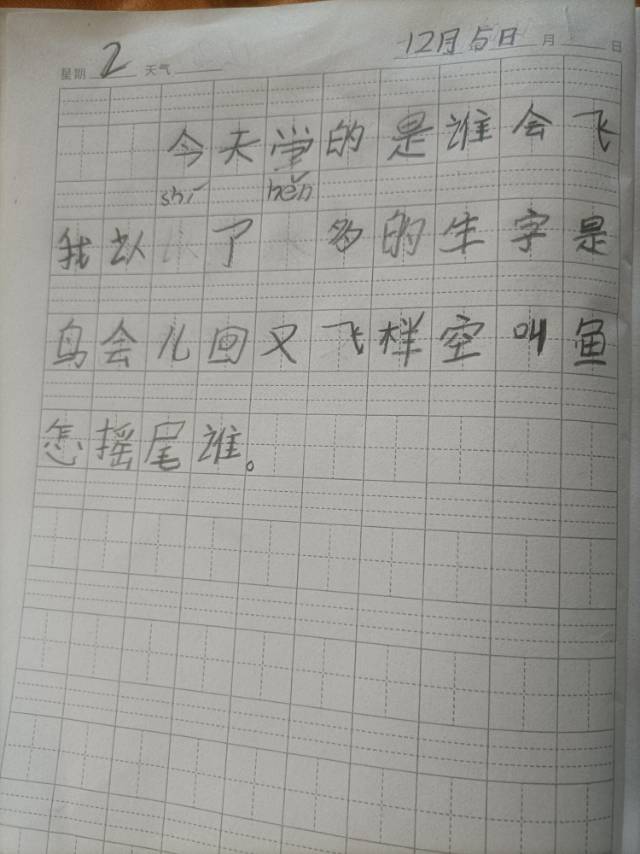 星期 2 天气 12月5日 月 日
今天学的是谁会飞
shí hěn
我认了多的生字是
鸟会儿回又飞样空叫鱼
怎摇尾谁。